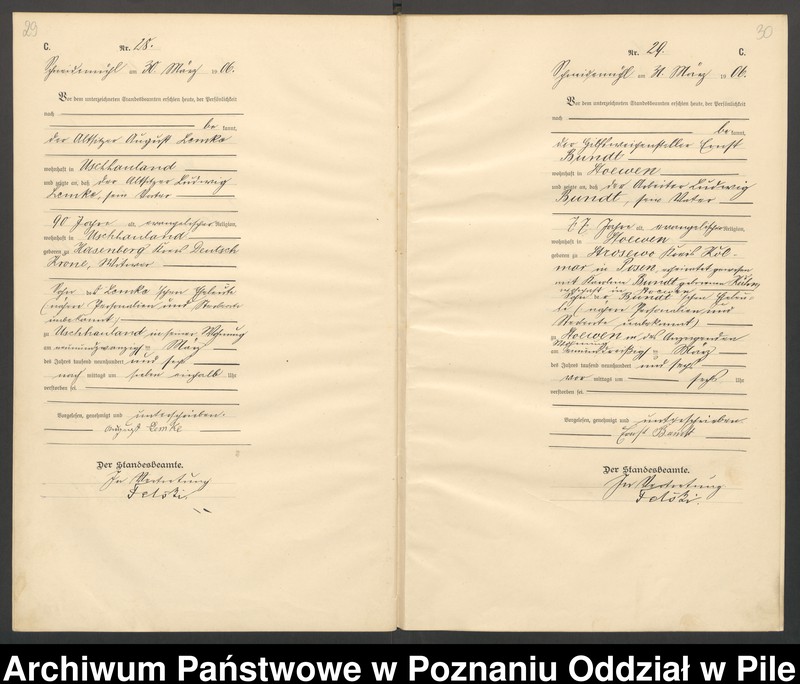 29
C.
Nr. 28.
Schneidemühl am 30. März 1906.
Vor dem unterzeichneten Standesbeamten erschien heute, der Persönlichkeit
nach
be kannt,
der Altsitzer August Lemke
wohnhaft in Uschhauland
und zeigte an, daß der Altsitzer Ludwig
Lemke, sein Vater
90 Jahre alt, evangelischer Religion,
wohnhaft in Uschhauland
geboren zu Hasenberg Kreis Deutsch
Krone, Witwer
Sohn der Lemke'schen Eheleute
(nähere Personalien und
unbekannt)
zu Uschhauland in seiner Wohnung
am neunundzwanzigsten März
des Jahres tausend neunhundert und sechs
nach mittags um sieben einhalb Uhr
verstorben sei.
Vorgelesen, genehmigt und unterschrieben.
August Lemke
Der Standesbeamte.
In Vertretung
30
Nr. 29.
C.
Schneidemühl am 31. März 1906.
Vor dem unterzeichneten Standesbeamten erschien heute, der Persönlichkeit
nach
be kannt,
der Hilfsweichensteller Ernst
Bundt
wohnhaft in Stoewen
und zeigte an, daß der Arbeiter Ludwig
Bundt, sein Vater
77 Jahre alt, evangelischer Religion,
wohnhaft in Stoewen
geboren zu Strosewo Kreis Kol-
mar in Posen, verheiratet gewesen
mit Karoline Bundt geborene
wohnhaft in Stoewen
Sohn der Bundt'schen Eheleu-
te (nähere Personalien und
unbekannt)
zu Stoewen in des Anzeigenden
Wohnung
am einunddreißigsten März
des Jahres tausend neunhundert und sechs
vor mittags um sechs Uhr
verstorben sei.
Vorgelesen, genehmigt und unterschrieben
Ernst Bundt
Der Standesbeamte.
In Vertretung
Archiwum Państwowe w Poznaniu Oddział w Pile